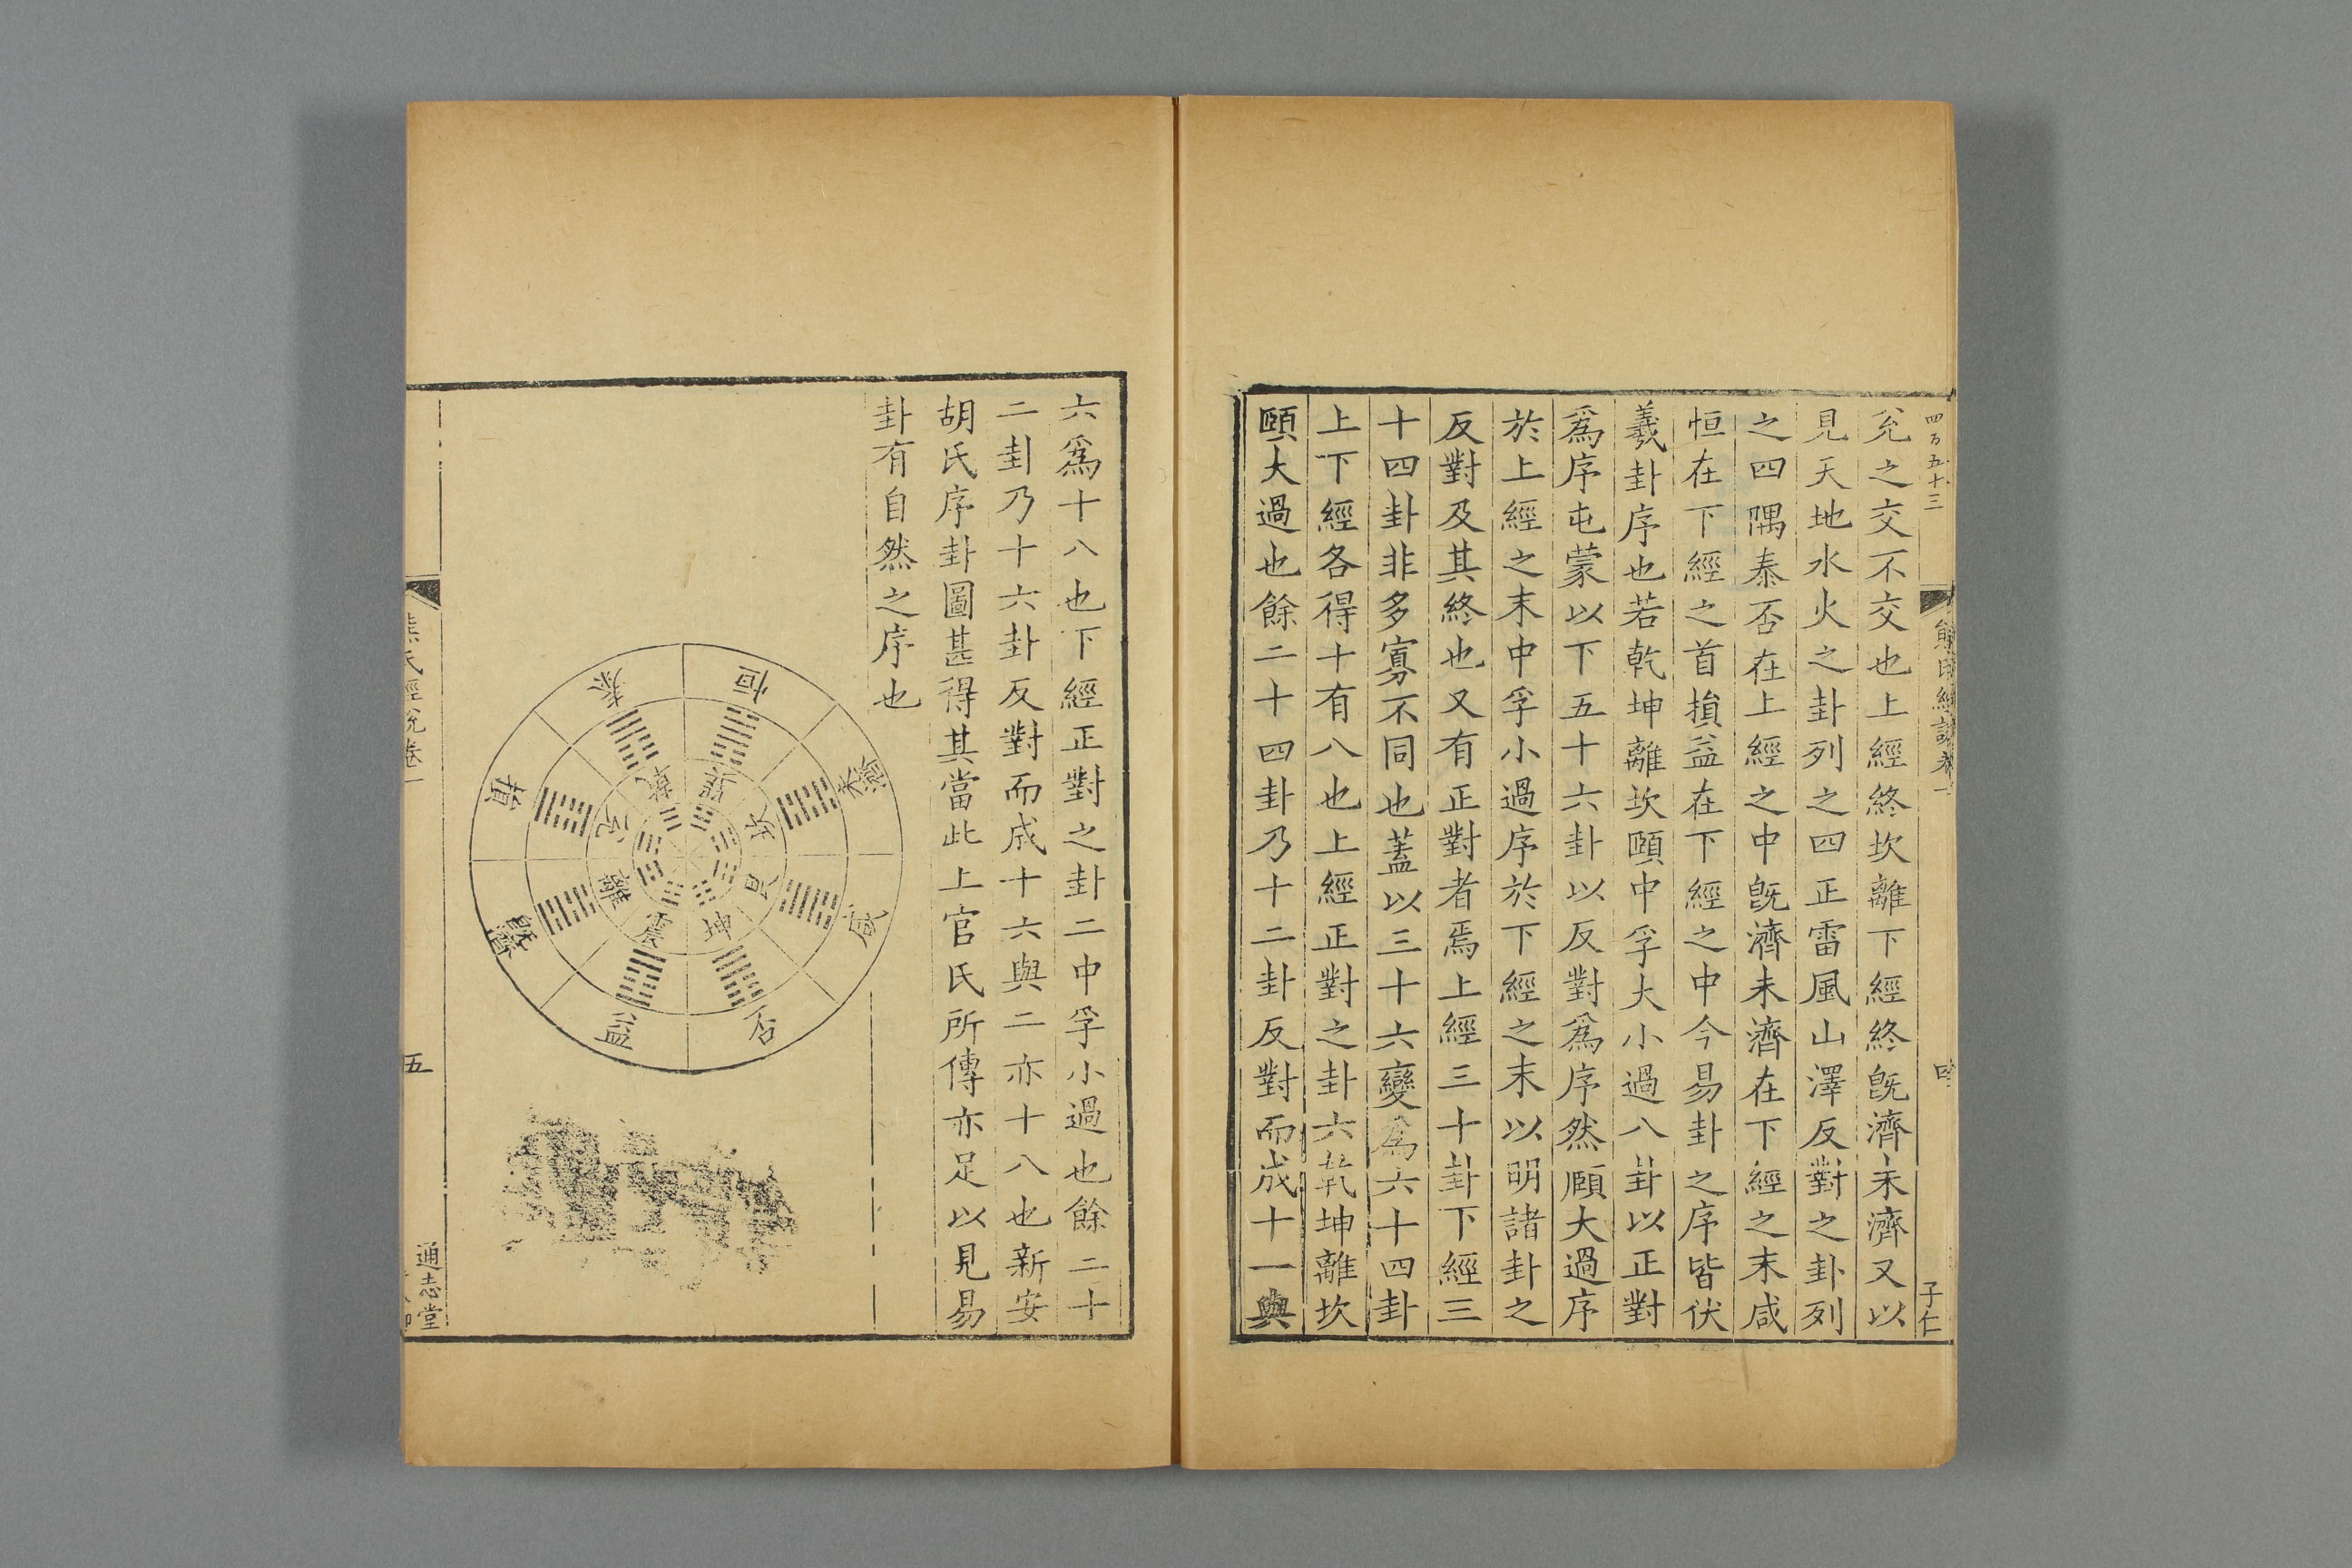 四百五十三
兊之交不交也上經終坎離下經終旣濟未濟又以
見天地水火之卦列之四正雷風山澤反對之卦列
之四隅泰否在上經之中旣濟未濟在下經之末咸
恒在下經之首損益在下經之中今易卦之序皆伏
羲卦序也若乾坤離坎頤中孚大小過八卦以正對
爲序屯蒙以下五十六卦以反對爲序然頤大過序
於上經之末中孚小過序於下經之末以明諸卦之
反對及其終也又有正對者焉上經三十卦下經三
十四卦非多寡不同也蓋以三十六變爲六十四卦
上下經各得十有八也上經正對之卦六乾坤離坎
頤大過也餘二十四卦乃十二卦反對而成十一與
熊氏經說卷一
四
子仁
六爲十八也下經正對之卦二中孚小過也餘二十
二卦乃十六卦反對而成十六與二亦十八也新安
胡氏序卦圖甚得其當此上官氏所傳亦足以見易
卦有自然之序也
恒
未濟
咸
否
益
旣濟
損
泰
巽
坎
艮
坤
震
離
兊
乾
熊氏經說卷一
五
通志堂